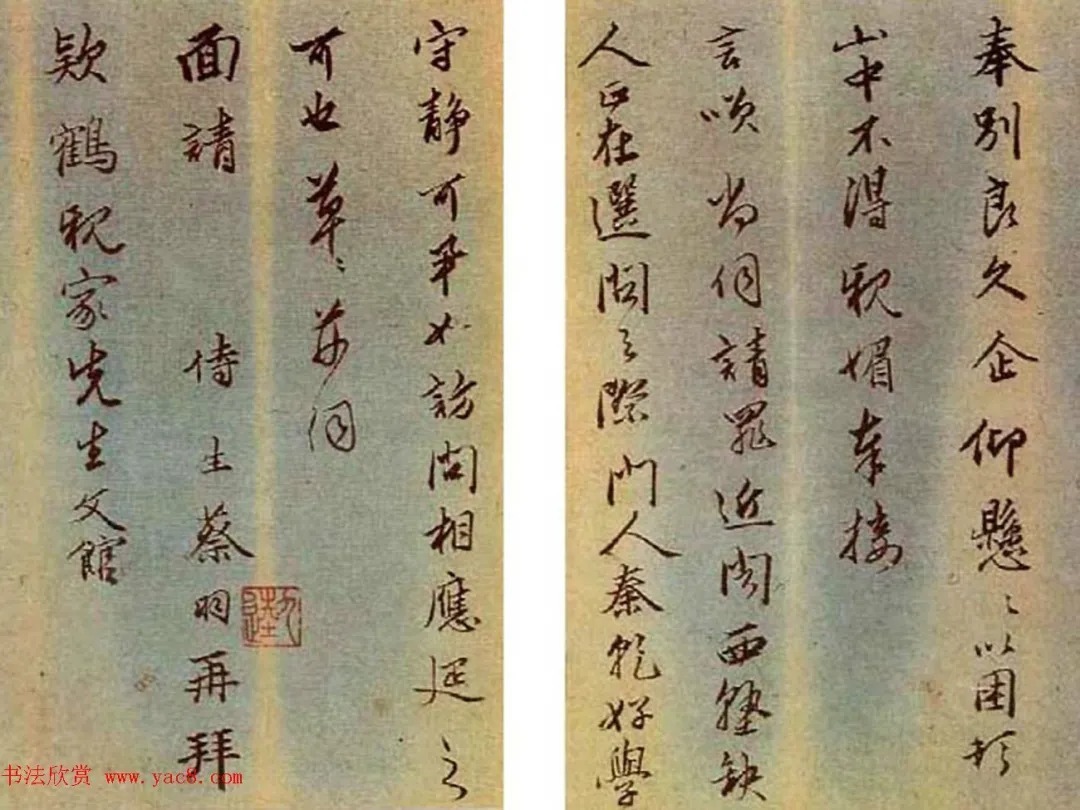 奉別良久企仰懸〻以困於
山中不得親媚奉接
言唉當伺請罪近聞西塾缺
人正在選閒之際門人秦乾好學
守靜可爭如訪問相應延之
可也草〻萬伺
面請 侍土蔡羽再拜
欵鶴親家先生文館
书法欣赏 www.yac8.com